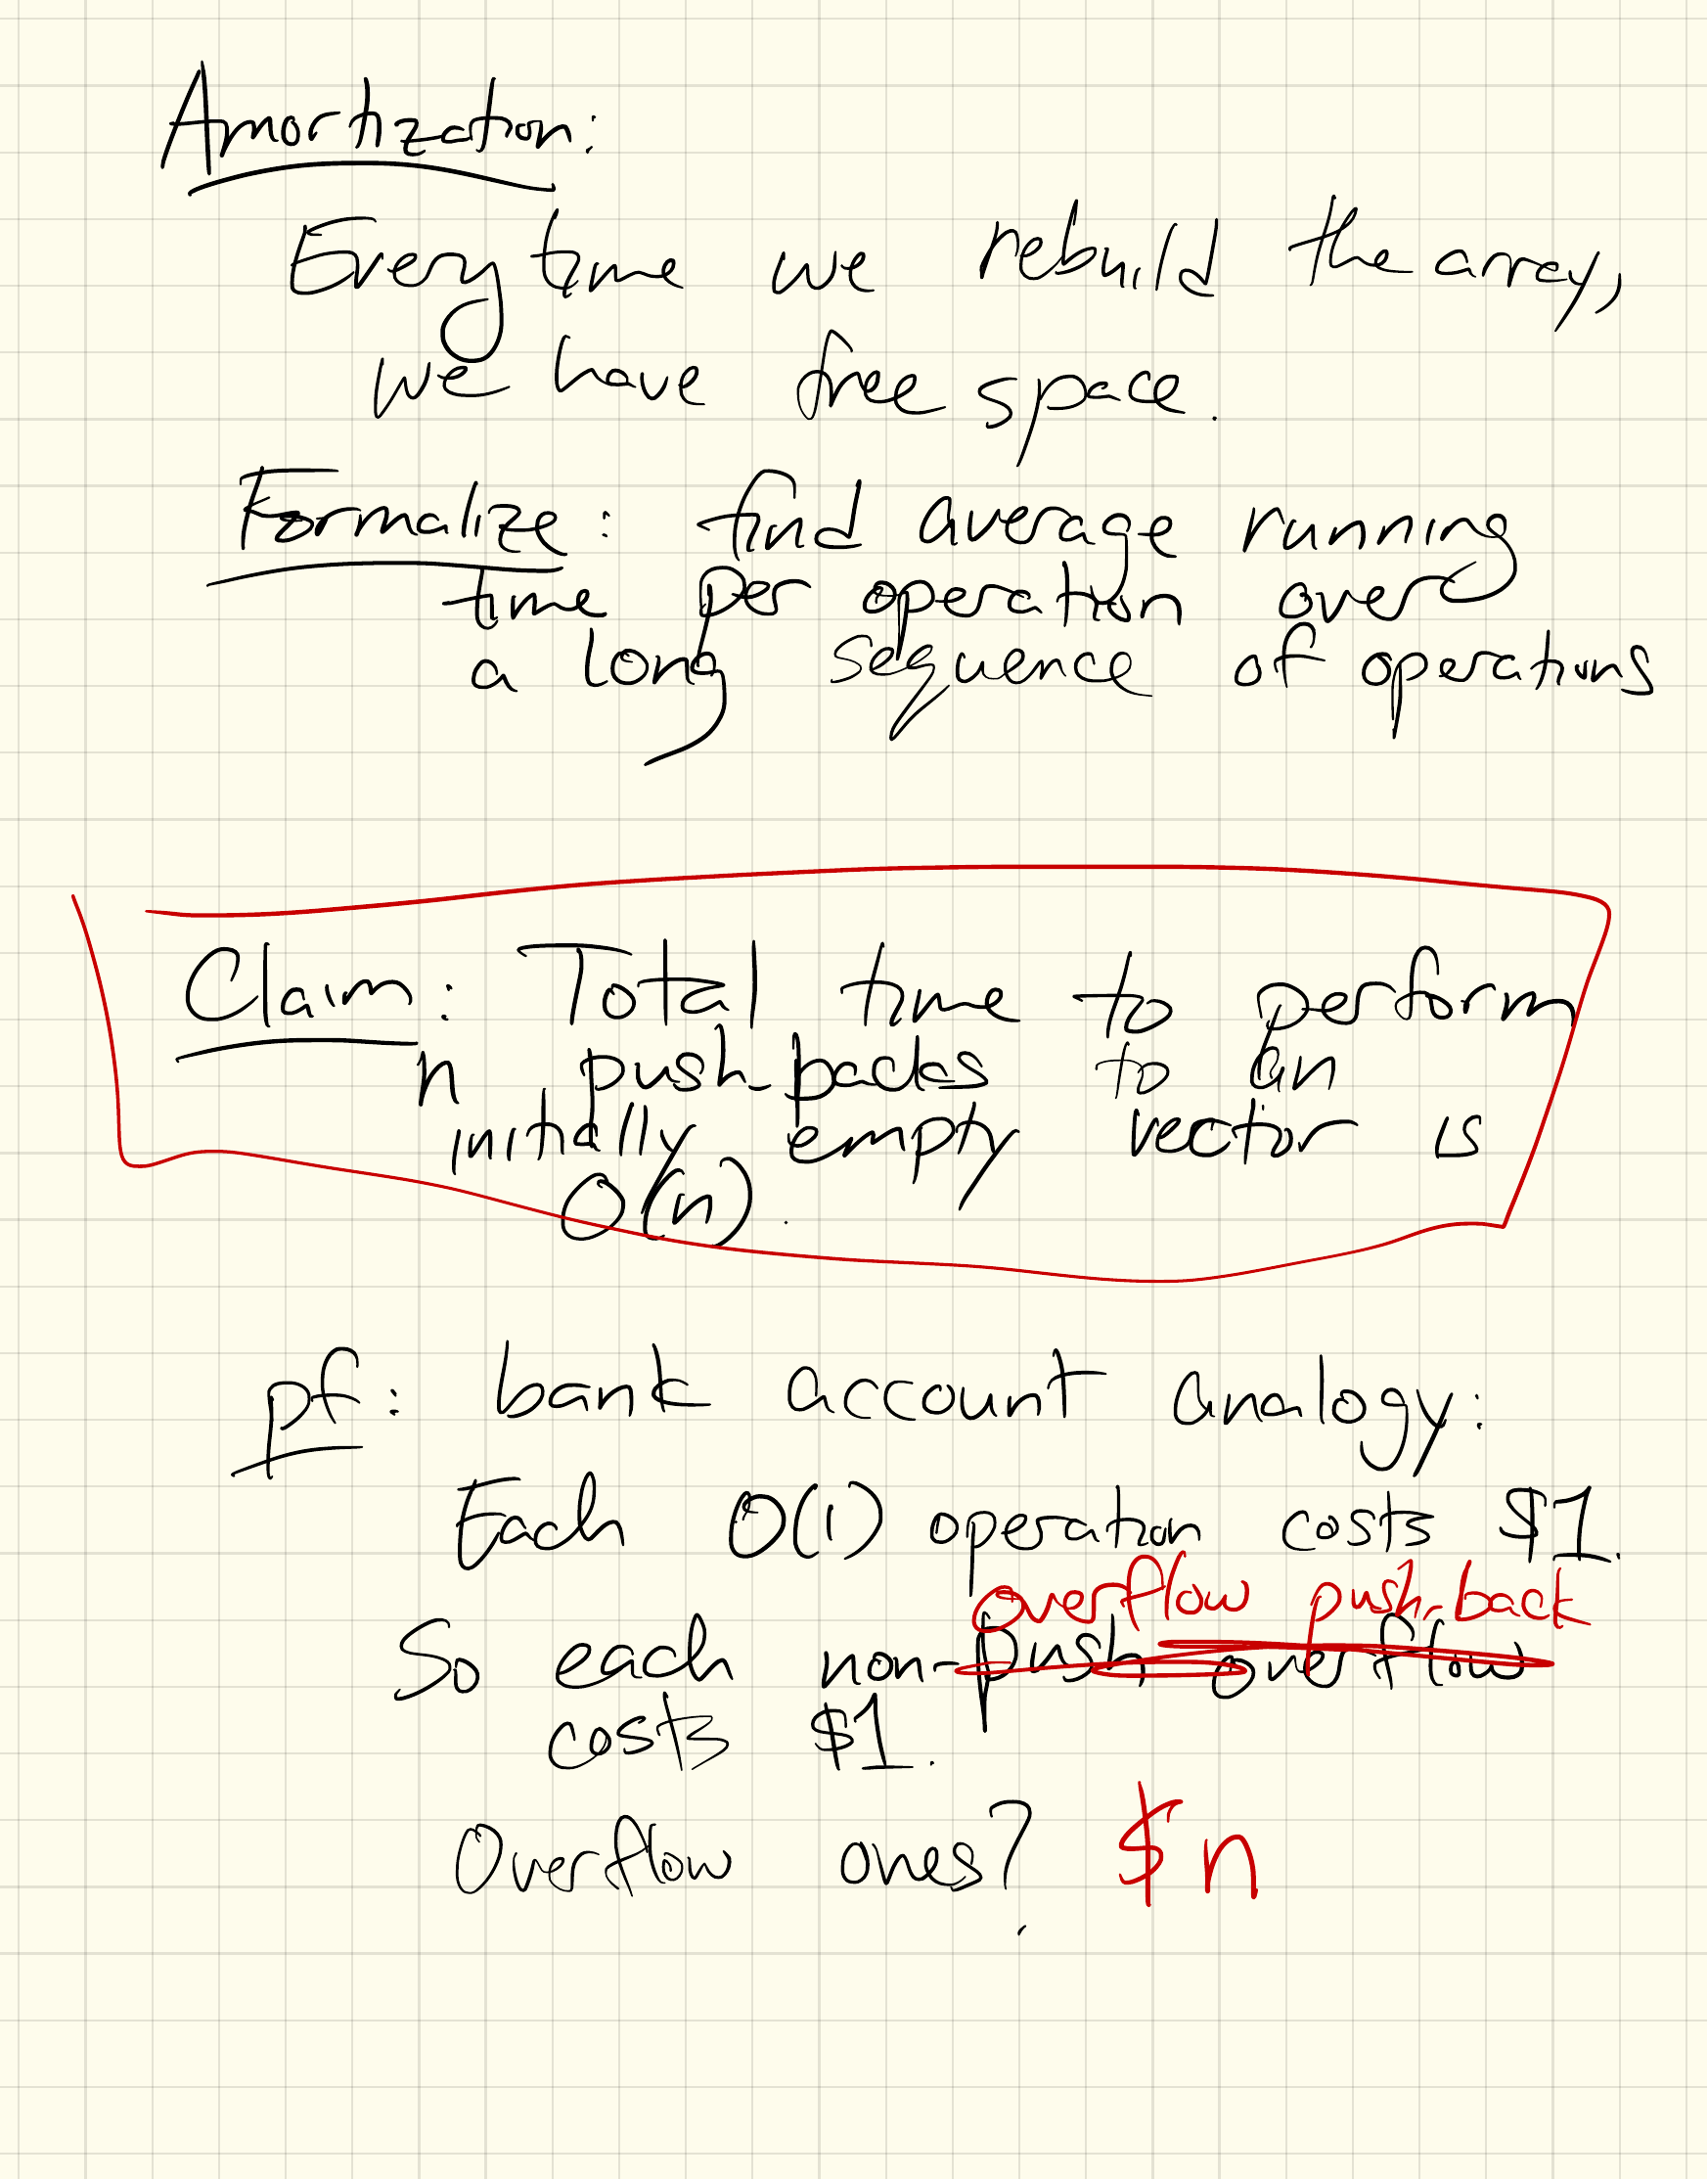 Amortization:
Every time we rebuild the array,
we have free space.
Formalize: find average running
time per operation over
a long sequence of operations
Claim: Total time to perform
n push_backs to an
initially empty vector is
O(n).
pf: bank account analogy:
Each O(1) operation costs $1.
overflow push_back
So each non-push overflow
costs $1.
Overflow ones? $n